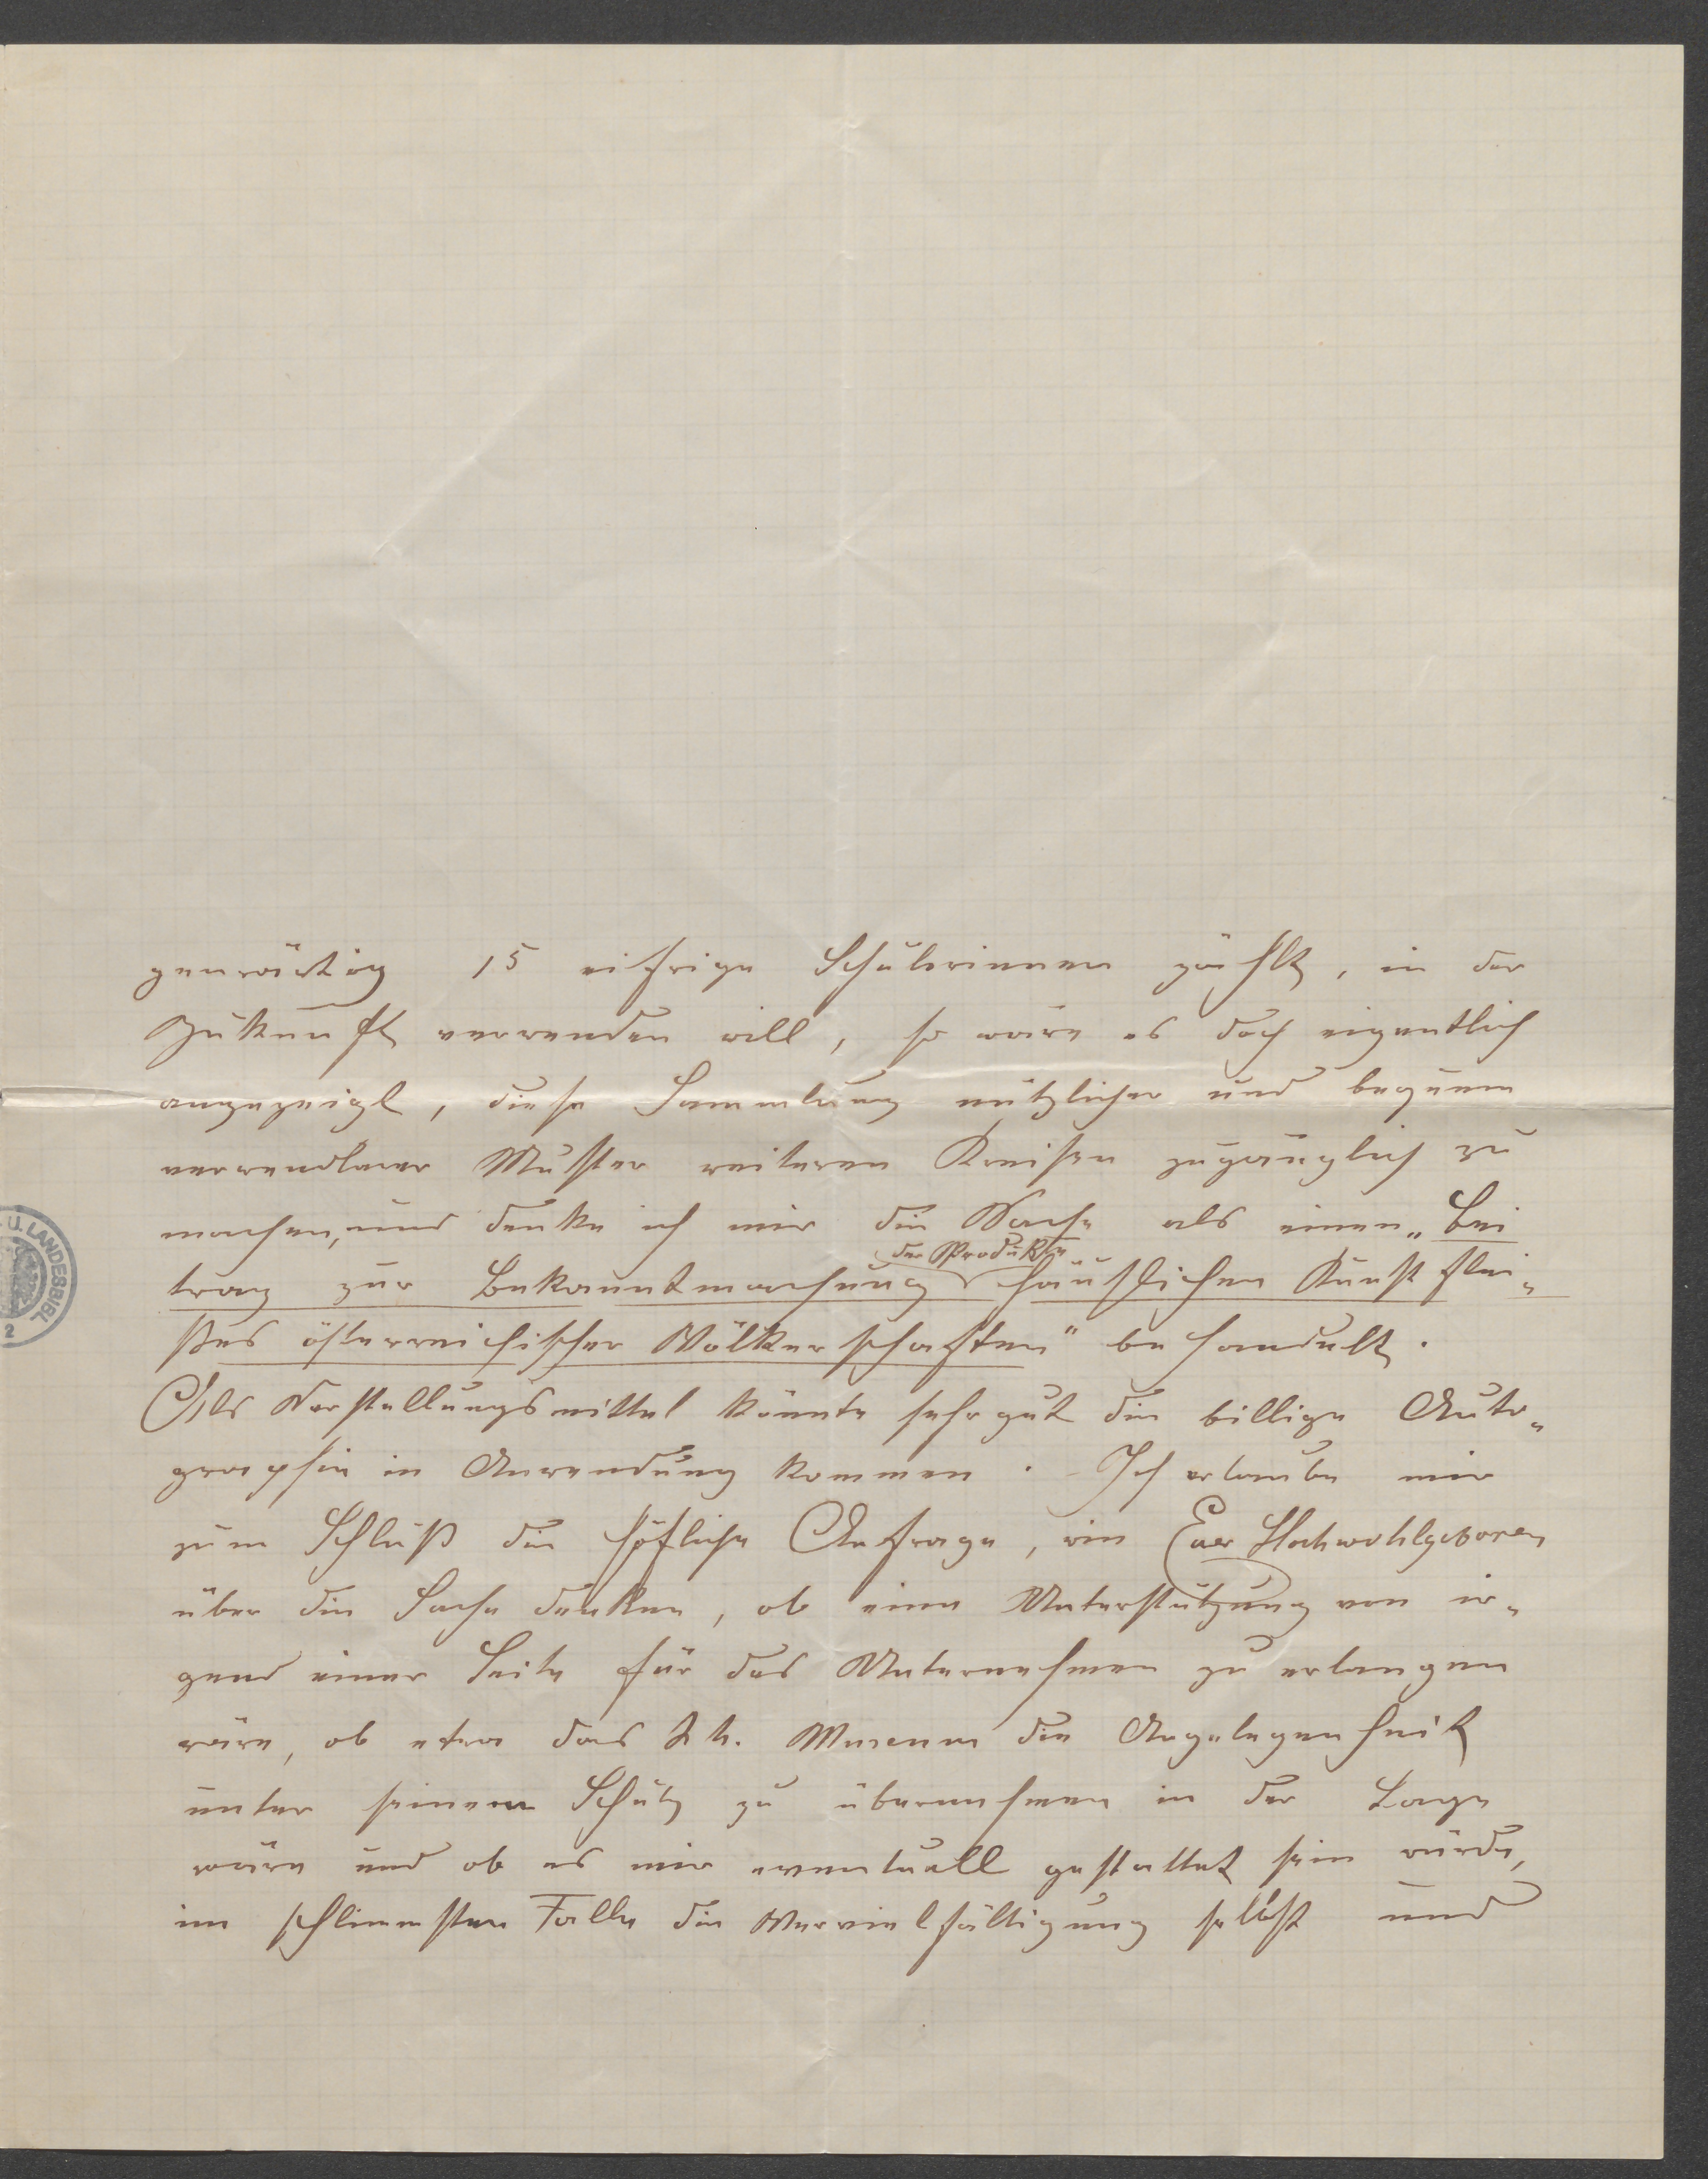 genwärtig 15 eifrige Schülerinnen zählt, in der
Zukunft verwenden will, so wäre es doch eigentlich
angezeigt, diese Sammlung nützlicher und bequem
verwendbarer Muster weiteren Kreisen zugänglich zu
machen, und denke ich mir die Sache als einen „Bei
trag zur Bekanntmachung der Produkte häuslichen Kunstflei„
ßes österreichischer Völkerschaften" behandelt.
Als Darstellungsmittel könnte sehr gut die billige Auto„
graphie in Anwendung kommen. – Ich erlaube mir
zum Schluß die höfliche Anfrage, wie Euer Hochwohlgeboren
über die Sache denken, ob eine Unterstützung von ir„
gend einer Seite für das Unternehmen zu erlangen
wäre, ob etwa das k. k. Museum die Angelegenheit
unter seinem Schutz zu übernehmen in der Lage
wäre und ob es mir eventuell gestattet sein würde,
im schlimmsten Falle die Vervielfältigung selbst und
U. LANDESBIBL
2